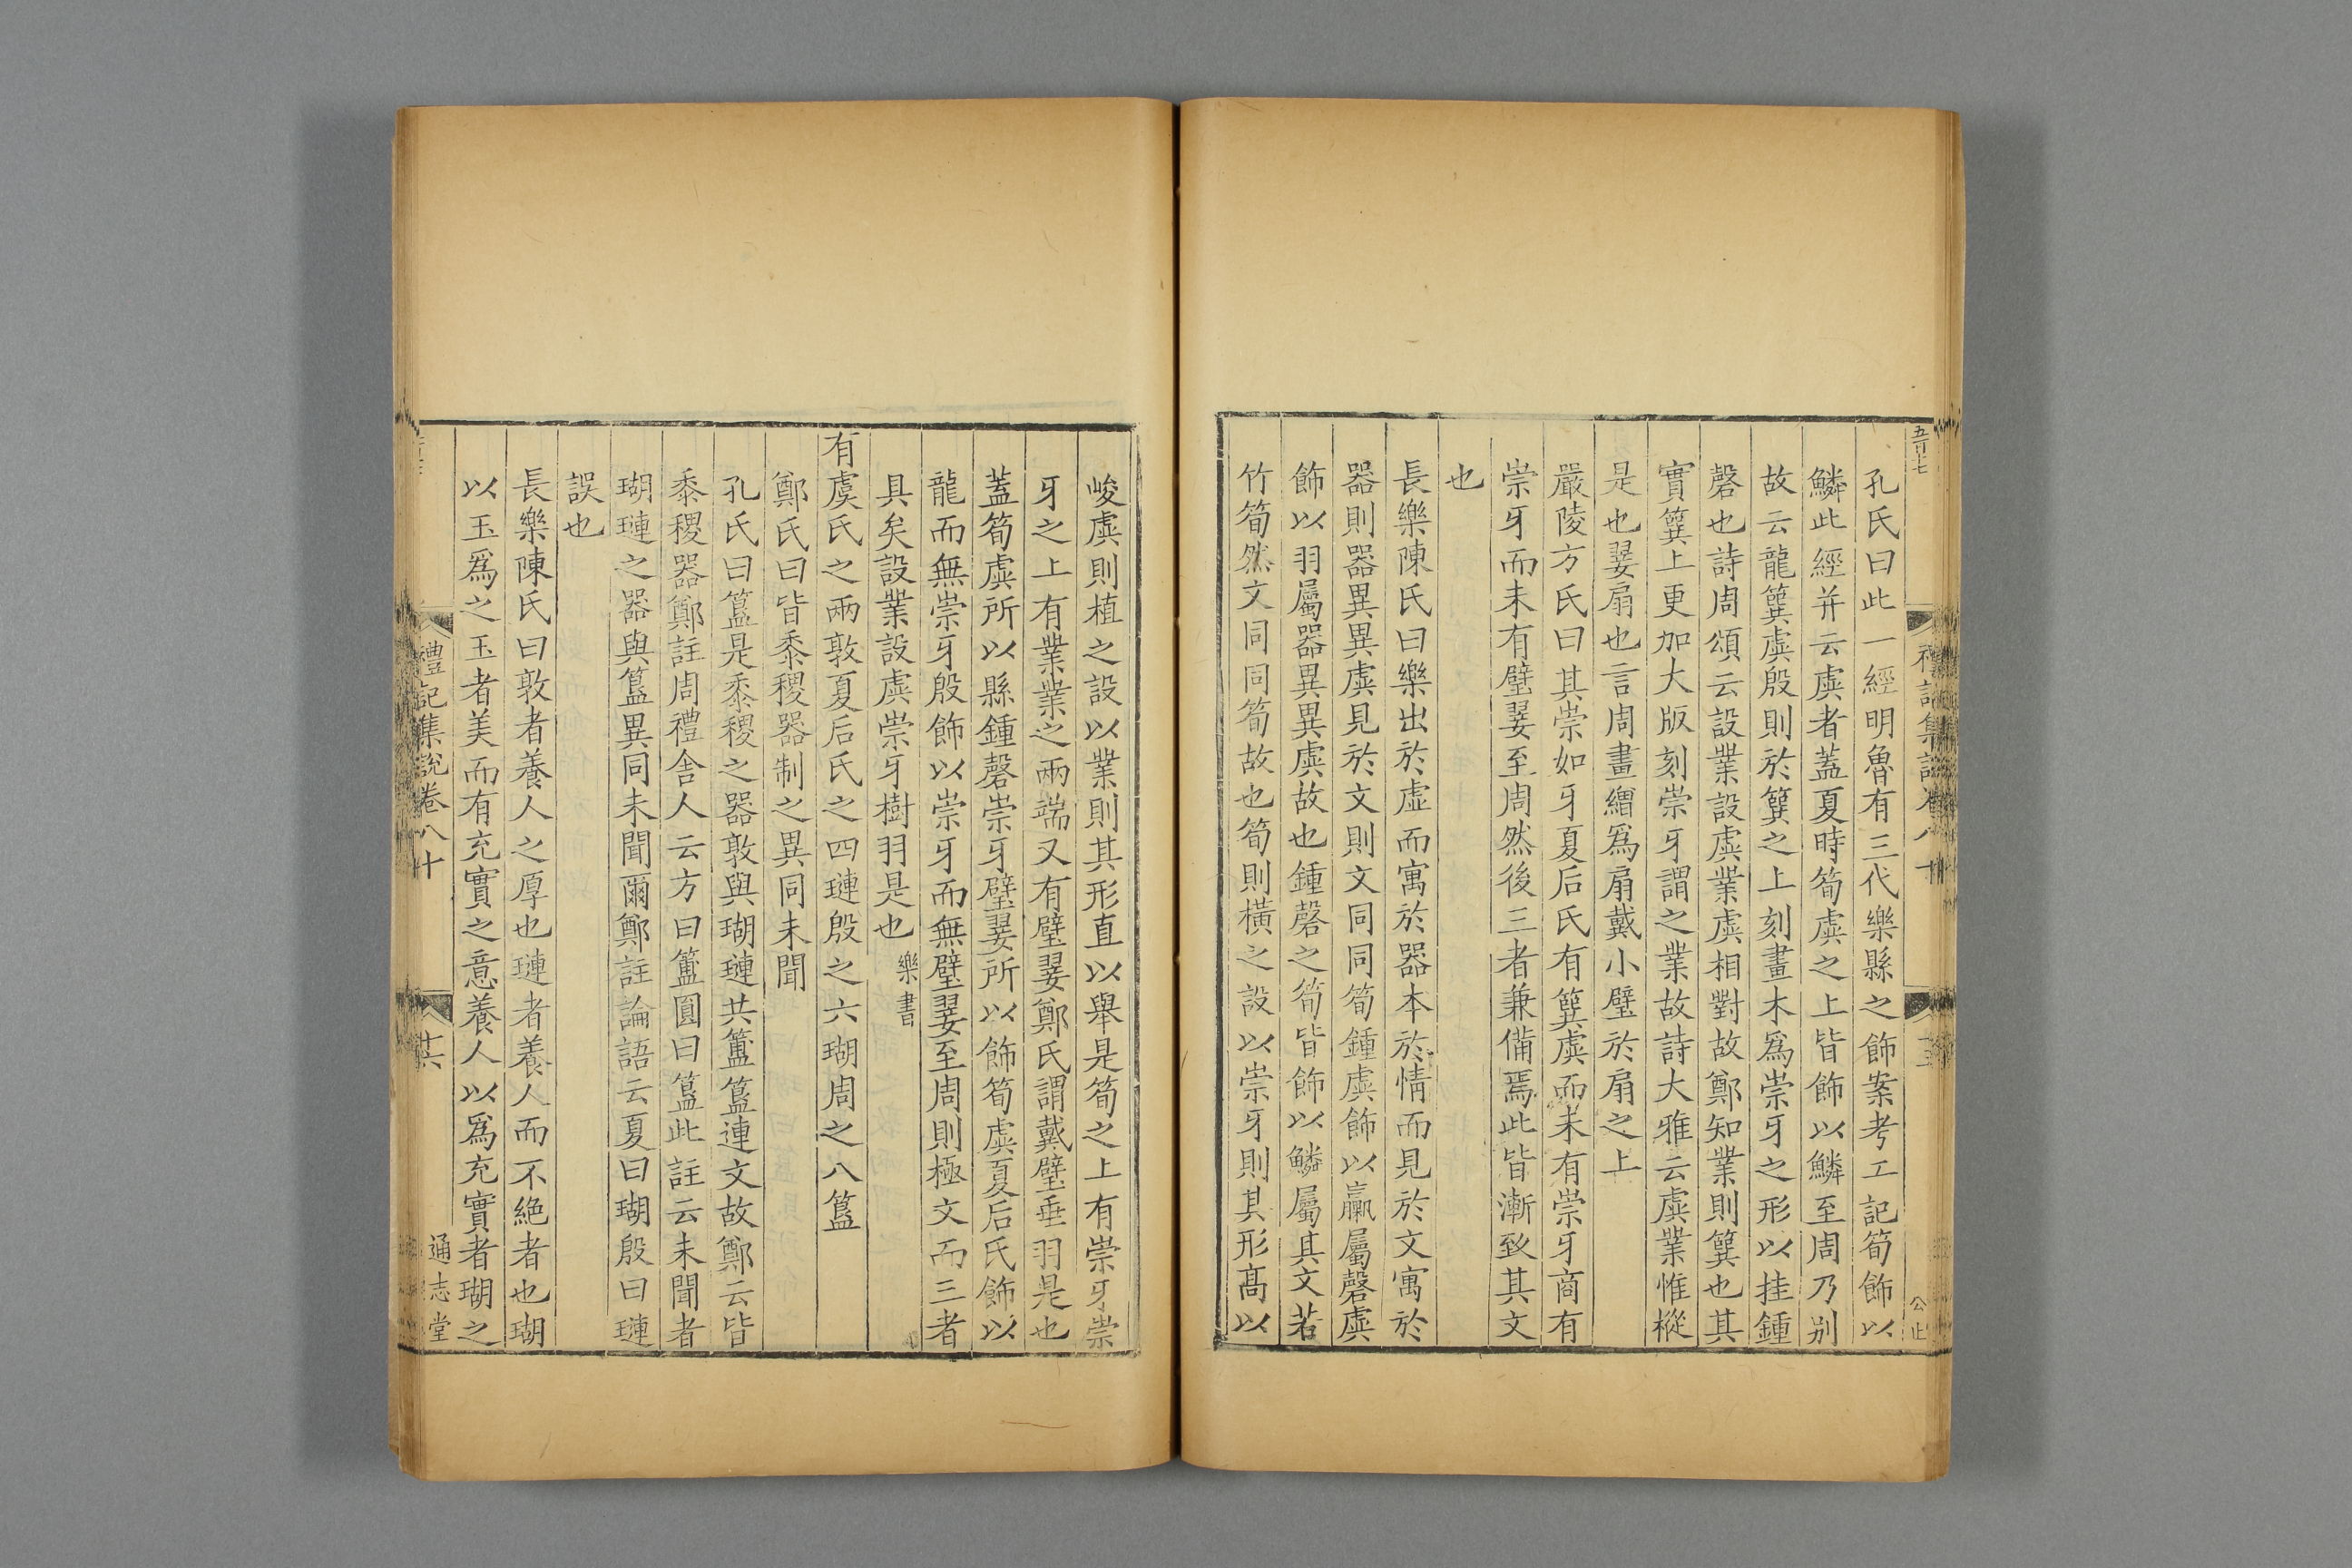 孔氏曰此一經明魯有三代樂縣之飾案考工記筍飾以
鱗此經并云虡者蓋夏時筍虡之上皆飾以鱗至周乃别
故云龍簨虡殷則於簨之上刻畫木爲崇牙之形以挂鍾
磬也詩周頌云設業設虡業虡相對故鄭知業則簨也其
實簨上更加大版刻崇牙謂之業故詩大雅云虡業惟樅
是也翣扇也言周畫繒爲扇戴小璧於扇之上
嚴陵方氏曰其崇如牙夏后氏有簨虡而未有崇牙商有
崇牙而未有璧翣至周然後三者兼備焉此皆漸致其文
也
長樂陳氏曰樂出於虛而寓於器本於情而見於文寓於
器則器異異虡見於文則文同同筍鍾虡飾以臝屬磬虡
飾以羽屬器異異虡故也鍾磬之筍皆飾以鱗屬其文若
竹筍然文同同筍故也筍則橫之設以崇牙則其形高以
峻虡則植之設以業則其形直以舉是筍之上有崇牙崇
牙之上有業業之兩端又有璧翣鄭氏謂戴璧垂羽是也
蓋筍虡所以縣鍾磬崇牙璧翣所以飾筍虡夏后氏飾以
龍而無崇牙殷飾以崇牙而無璧翣至周則極文而三者
具矣設業設虡崇牙樹羽是也 樂書
有虞氏之兩敦夏后氏之四璉殷之六瑚周之八簋
鄭氏曰皆黍稷器制之異同未聞
孔氏曰簋是黍稷之器敦與瑚璉共簠簋連文故鄭云皆
黍稷器鄭註周禮舍人云方曰簠圓曰簋此註云未聞者
瑚璉之器與簋異同未聞爾鄭註論語云夏曰瑚殷曰璉
誤也
長樂陳氏曰敦者養人之厚也璉者養人而不絶者也瑚
以玉爲之玉者美而有充實之意養人以爲充實者瑚之
禮記集說卷八十
通志堂